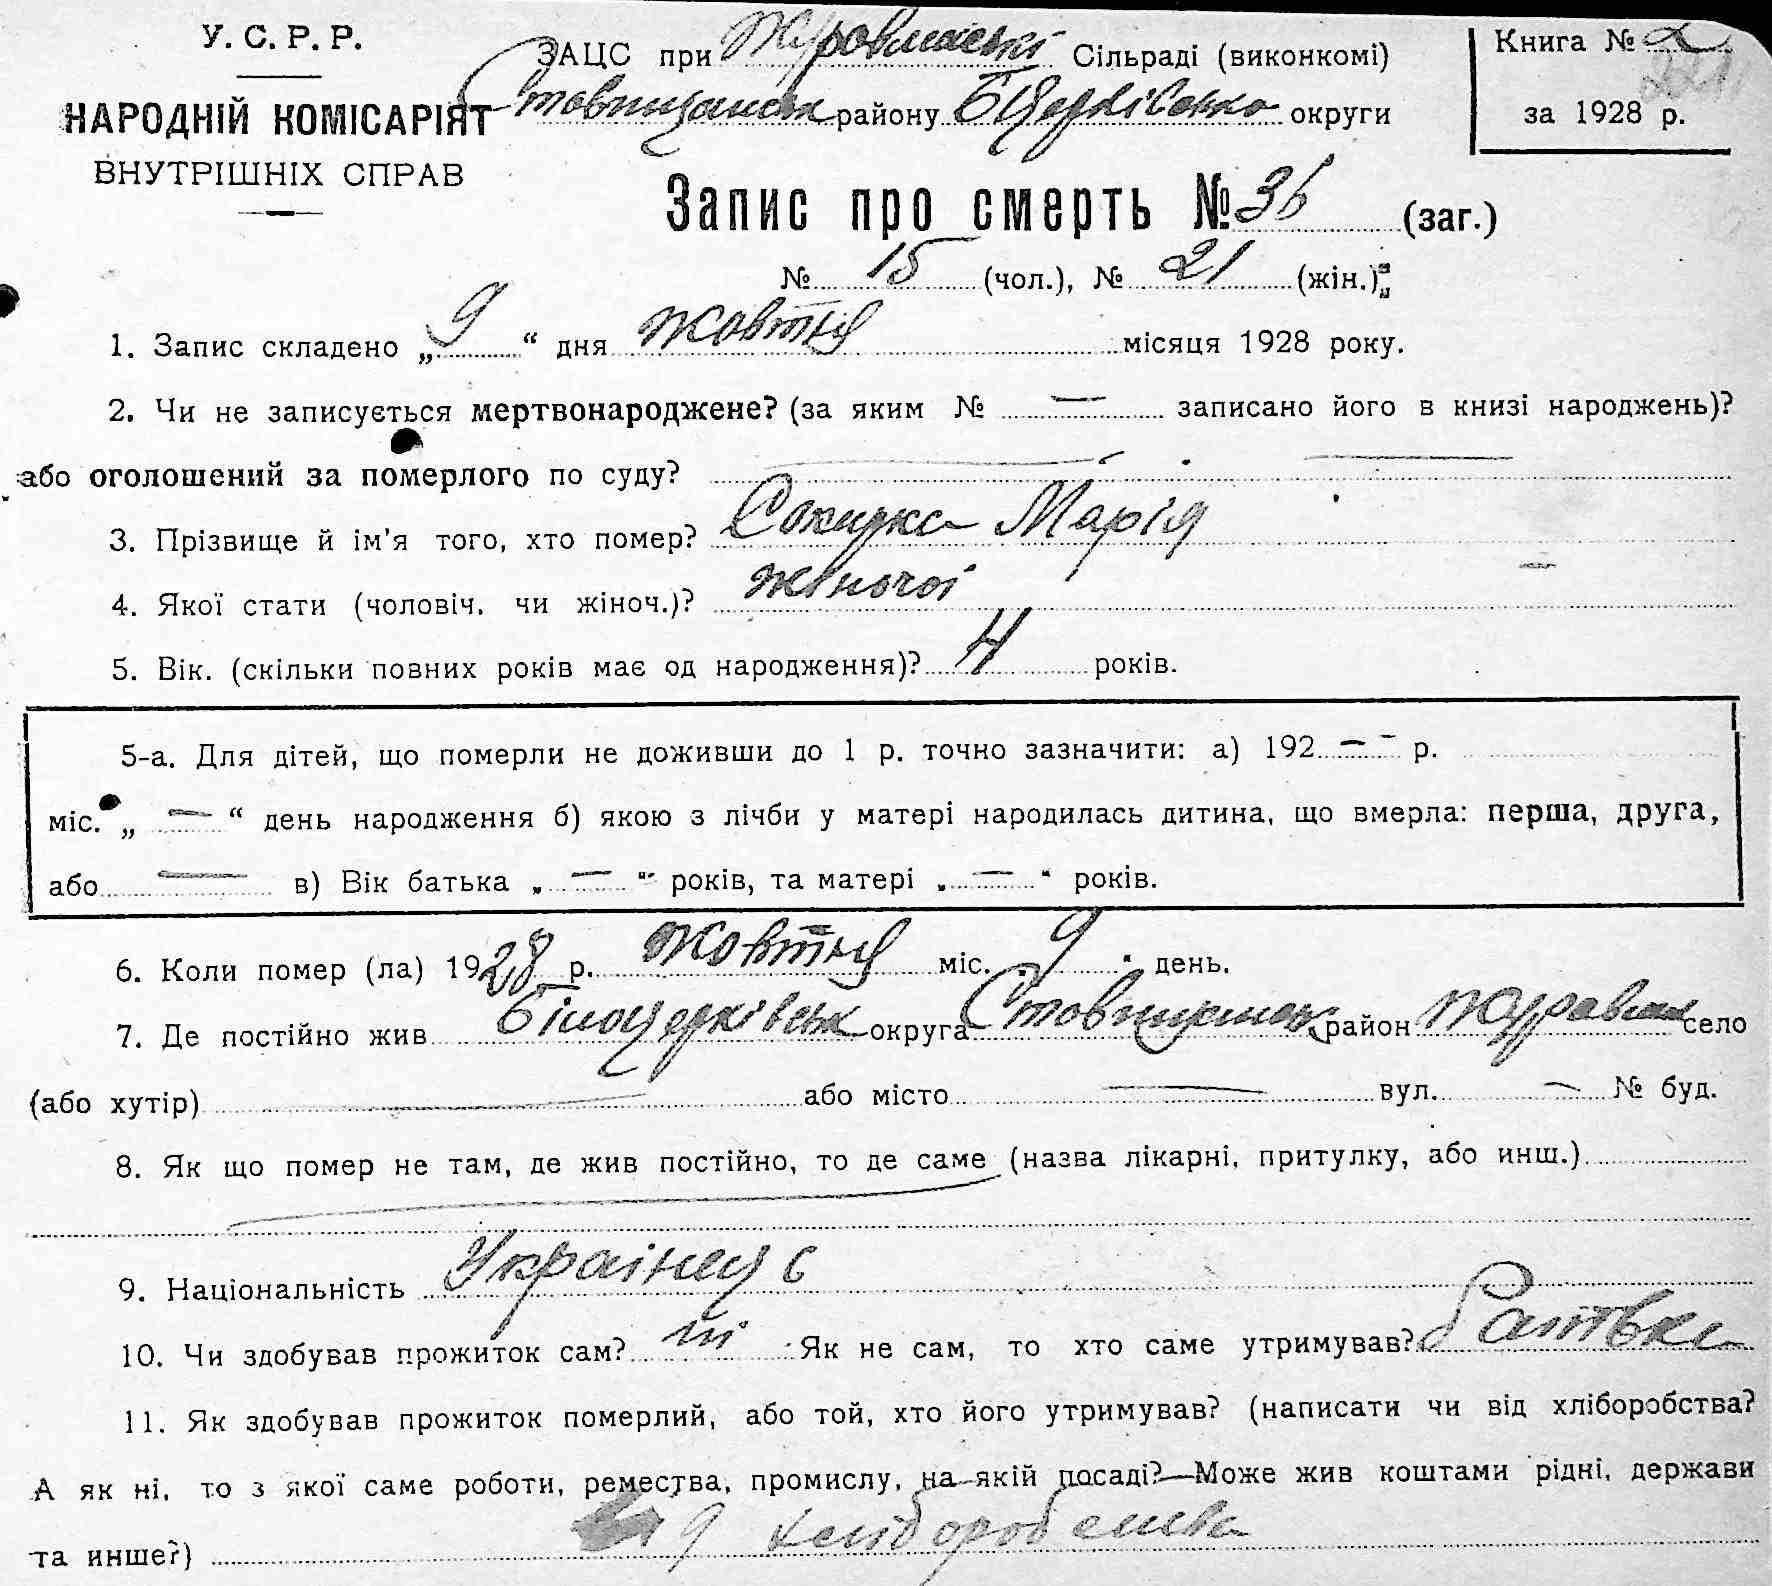 У. С. Р. Р.
НАРОДНІЙ КОМІСАРІЯТ
ВНУТРІШНІХ СПРАВ
ЗАЦС при Сільраді (виконкомі)
району округи
Книга № 2
за 1928 р.
Запис про смерть № 36 (заг.)
№ 15 (чол.), № 21 (жін.)
1. Запис складено „ 9 “ дня жовтня місяця 1928 року.
2. Чи не записується мертвонароджене? (за яким № — записано його в книзі народжень)?
або оголошений за померлого по суду? —
3. Прізвище й ім’я того, хто помер? Марія
4. Якої стати (чоловіч. чи жіноч.)? жіночоі
5. Вік. (скільки повних років має од народження)? 4 років.
5-а. Для дітей, що померли не доживши до 1 р. точно зазначити: а) 192 — р.
міс. „ — “ день народження б) якою з лічби у матері народилась дитина, що вмерла: перша, друга,
або — в) Вік батька „ — “ років, та матері „ — “ років.
6. Коли помер (ла) 1928 р. жовтня міс. 9 день.
7. Де постійно жив Білоцерківськ округа район село
(або хутір) — або місто — вул. — № буд.
8. Як що помер не там, де жив постійно, то де саме (назва лікарні, притулку, або инш.)
9. Національність
10. Чи здобував прожиток сам? ні Як не сам, то хто саме утримував? батько
11. Як здобував прожиток померлий, або той, хто його утримував? (написати чи від хліборобства?
А як ні, то з якої саме роботи, ремества, промислу, на якій посаді?—Може жив коштами рідні, держави
та инше?)